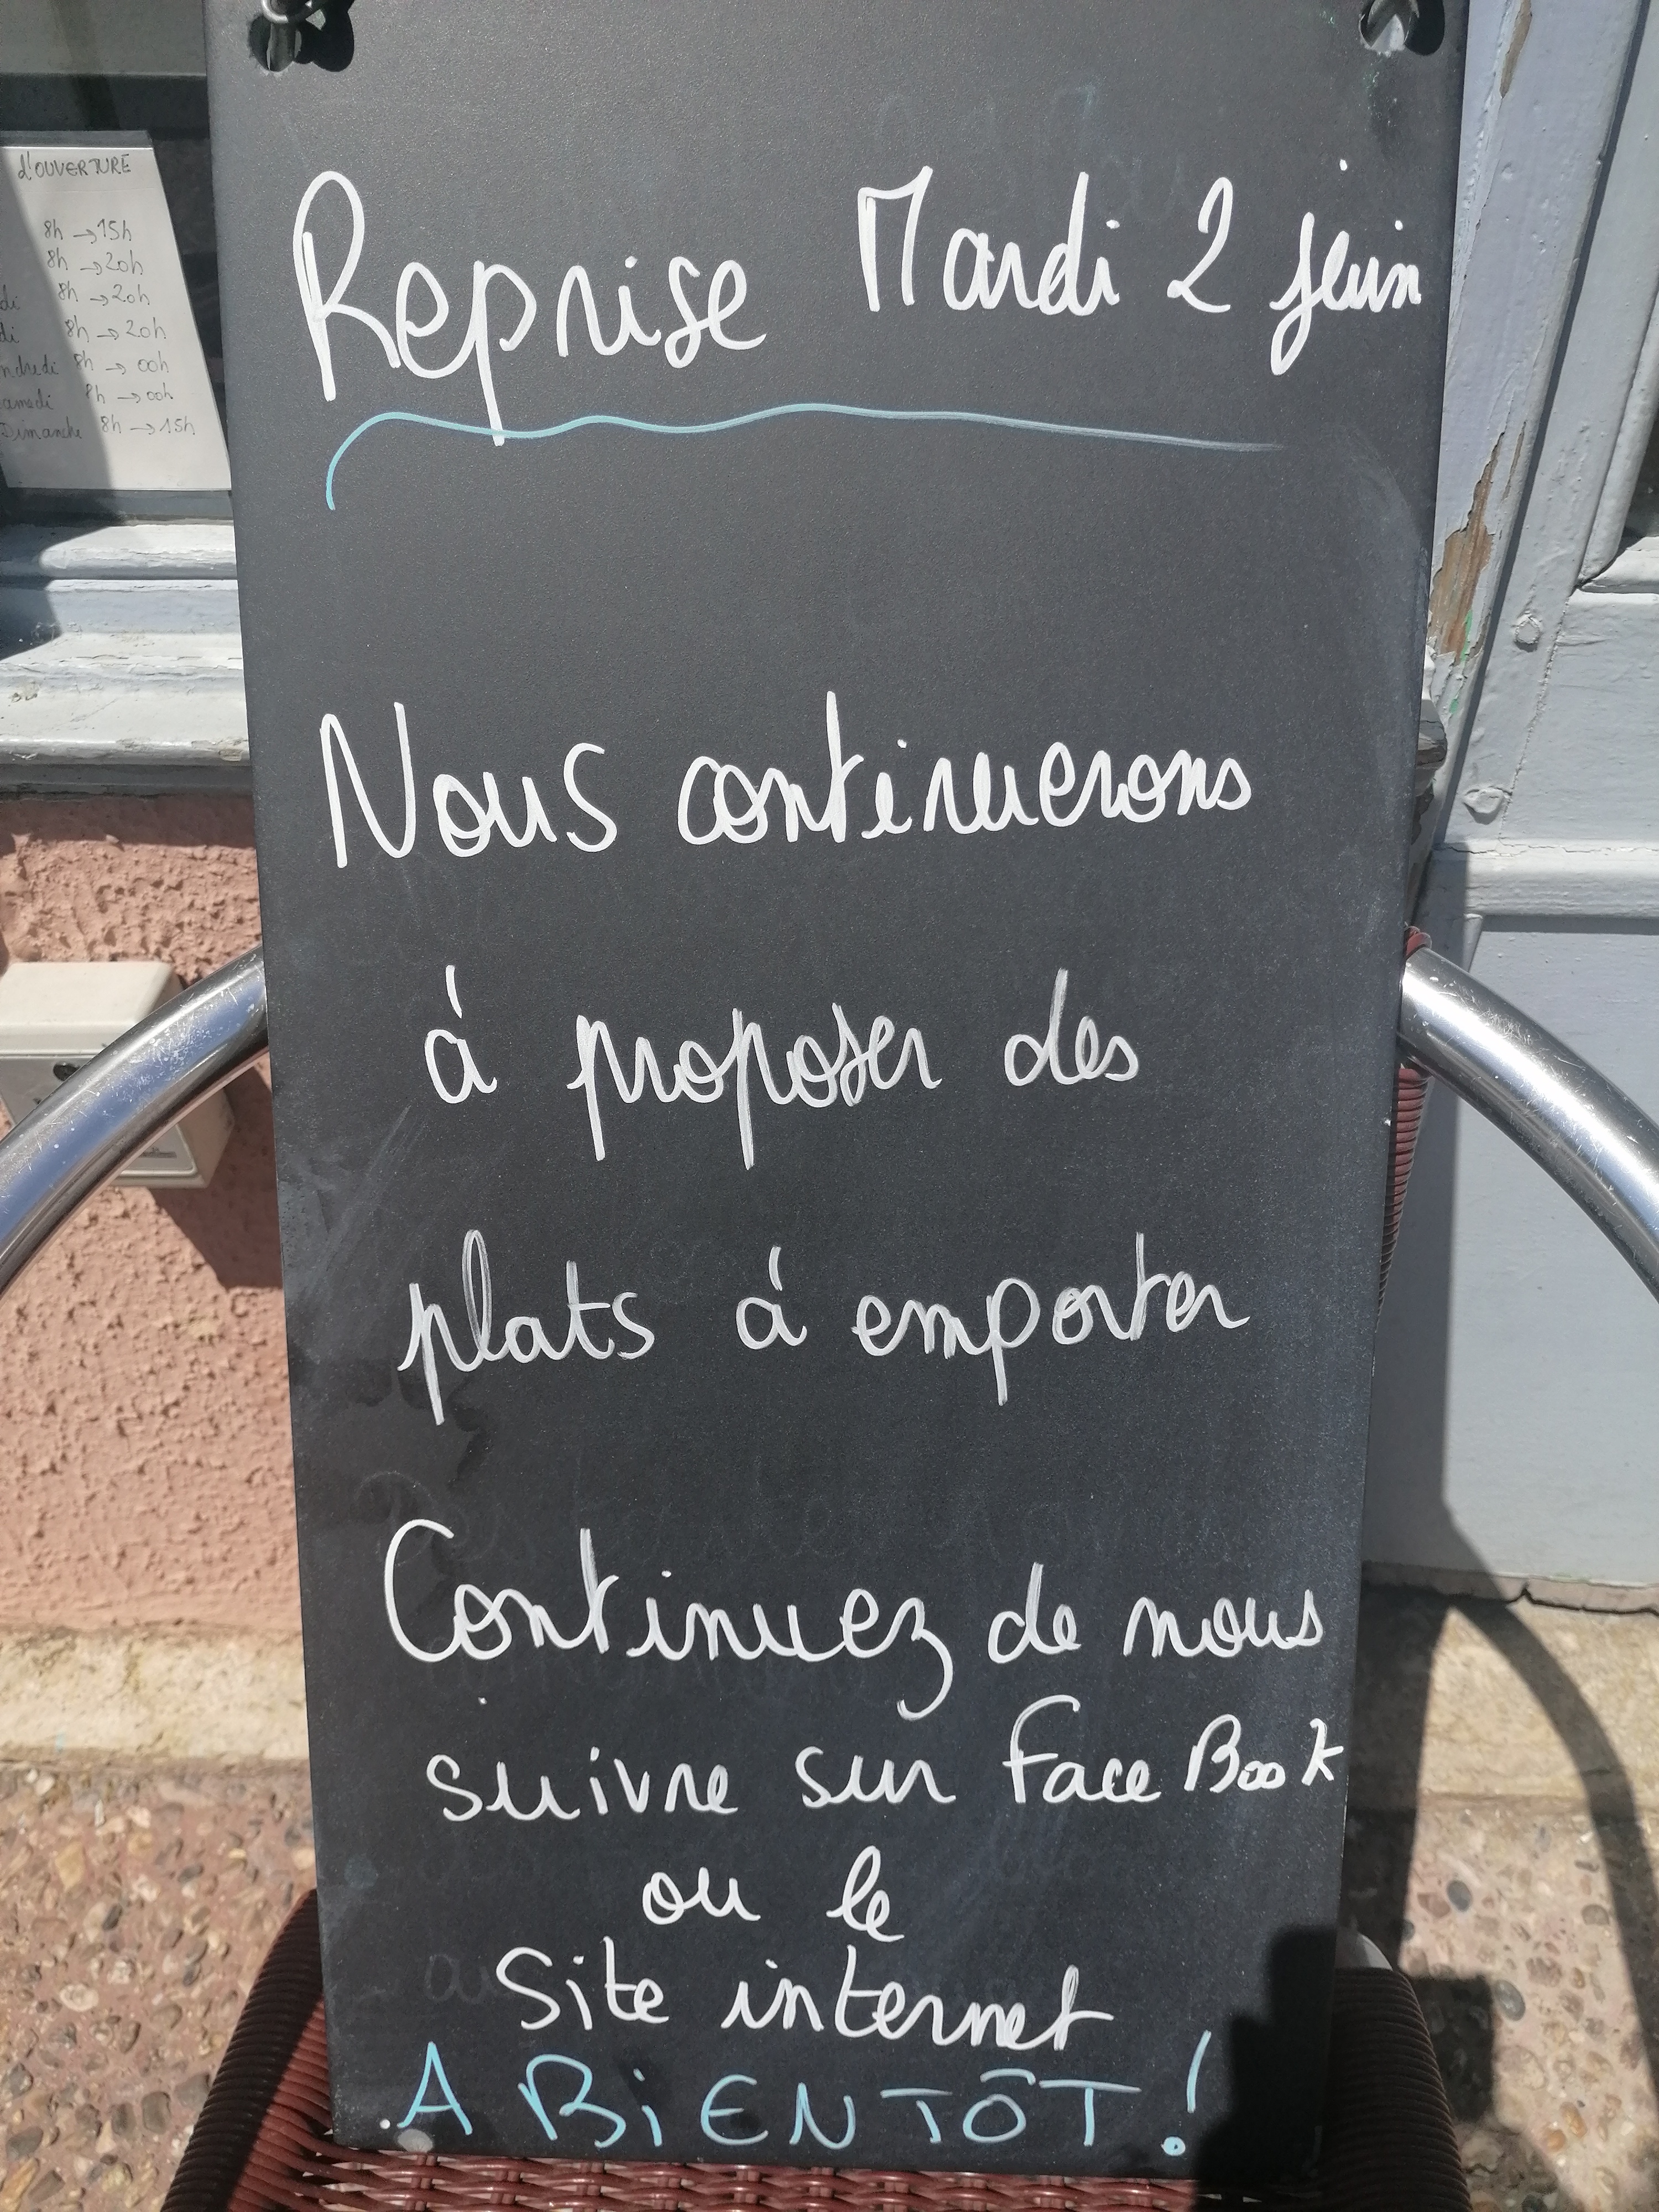 d'OUVERTURE
8h → 15h
8h → 20h
di 8h → 20h
di 8h → 20h
ndredi 8h → 00h
amedi 8h → 00h
Dimanche 8h → 15h
Reprise Mardi 2 juin
Nous continuerons
à proposer des
plats à emporter
Continuez de nous
suivre sur FaceBook
ou le
Site internet
A BiENTÔT !